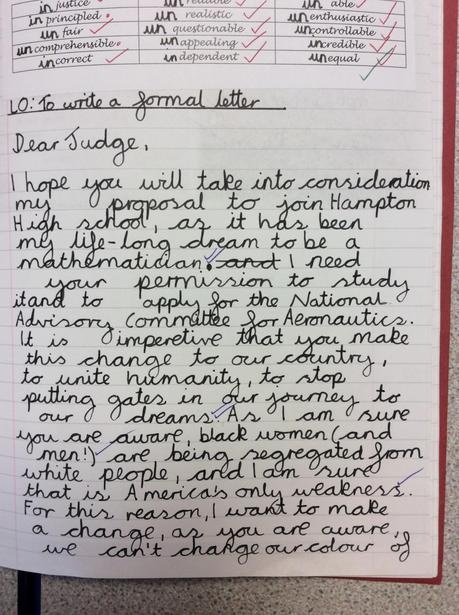 injustice unable
inprincipled unrealistic unenthusiastic
unfair unquestionable uncontrollable
uncomprehensible unappealing incredible
incorrect independent unequal
LO: To write a formal letter
Dear Judge,
I hope you will take into consideration
my proposal to join Hampton
High school, as it has been
my life-long dream to be a
mathematician. and I need
your permission to study
it and to apply for the National
Advisory Committee for Aeronautics.
It is imperetive that you make
this change to our country,
to unite humanity, to stop
putting gates in our journey to
our dreams. As I am sure
you are aware, black women (and
men!) are being segregated from
white people, and I am sure
that is America's only weakness.
For this reason, I want to make
a change, as you are aware,
we can't change our colour of